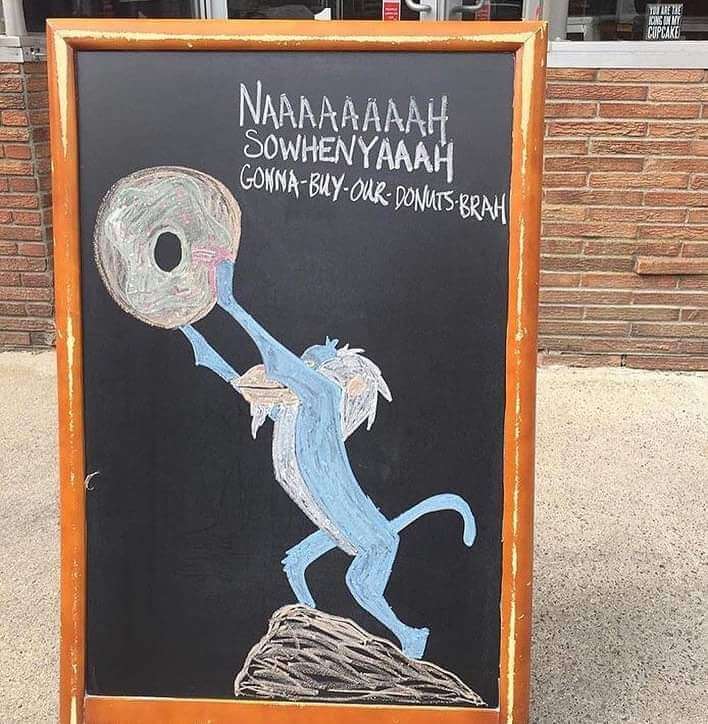 YOU ARE THE
ICING ON MY
CUPCAKE
NAAAAAAAAH
SOWHENYAAAH
GONNA-BUY-OUR-DONUTS-BRAH